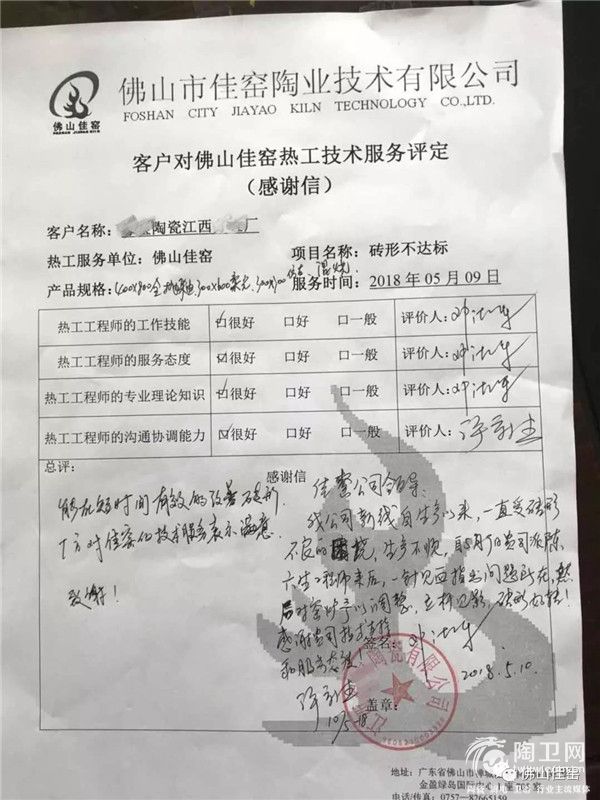 佛山佳窑
佛山市佳窑陶业技术有限公司
FOSHAN CITY JIAYAO KILN TECHNOLOGY CO.,LTD.
客户对佛山佳窑热工技术服务评定
（感谢信）
客户名称： 陶瓷江西 厂
热工服务单位：佛山佳窑 项目名称：砖形不达标
产品规格： 服务时间：2018年05月09日
热工工程师的工作技能 口很好 口好 口一般 评价人：
热工工程师的服务态度 口很好 口好 口一般 评价人：
热工工程师的专业理论知识 口很好 口好 口一般 评价人：
热工工程师的沟通协调能力 口很好 口好 口一般 评价人：
总评：
能在短时间有效的改善砖形
厂方对佳窑的技术服务表示满意
致谢！
感谢信
佳窑公司领导：
我公司新线自生产以来，一直受砖形
不良的困扰，生产不快，
工程师来后，一针见血指出问题所在，然
后对窑炉予以调整，立杆见影，砖形好转！
感谢贵司技术支持
和服务态度！
签名：
2018.5.10.
盖章：
陶瓷有限公司
地址：广东省佛山市
金盈绿岛国际中心
电话/传真：0757-87665150
陶卫网
佛山佳窑
陶瓷 卫浴 行业主流媒体